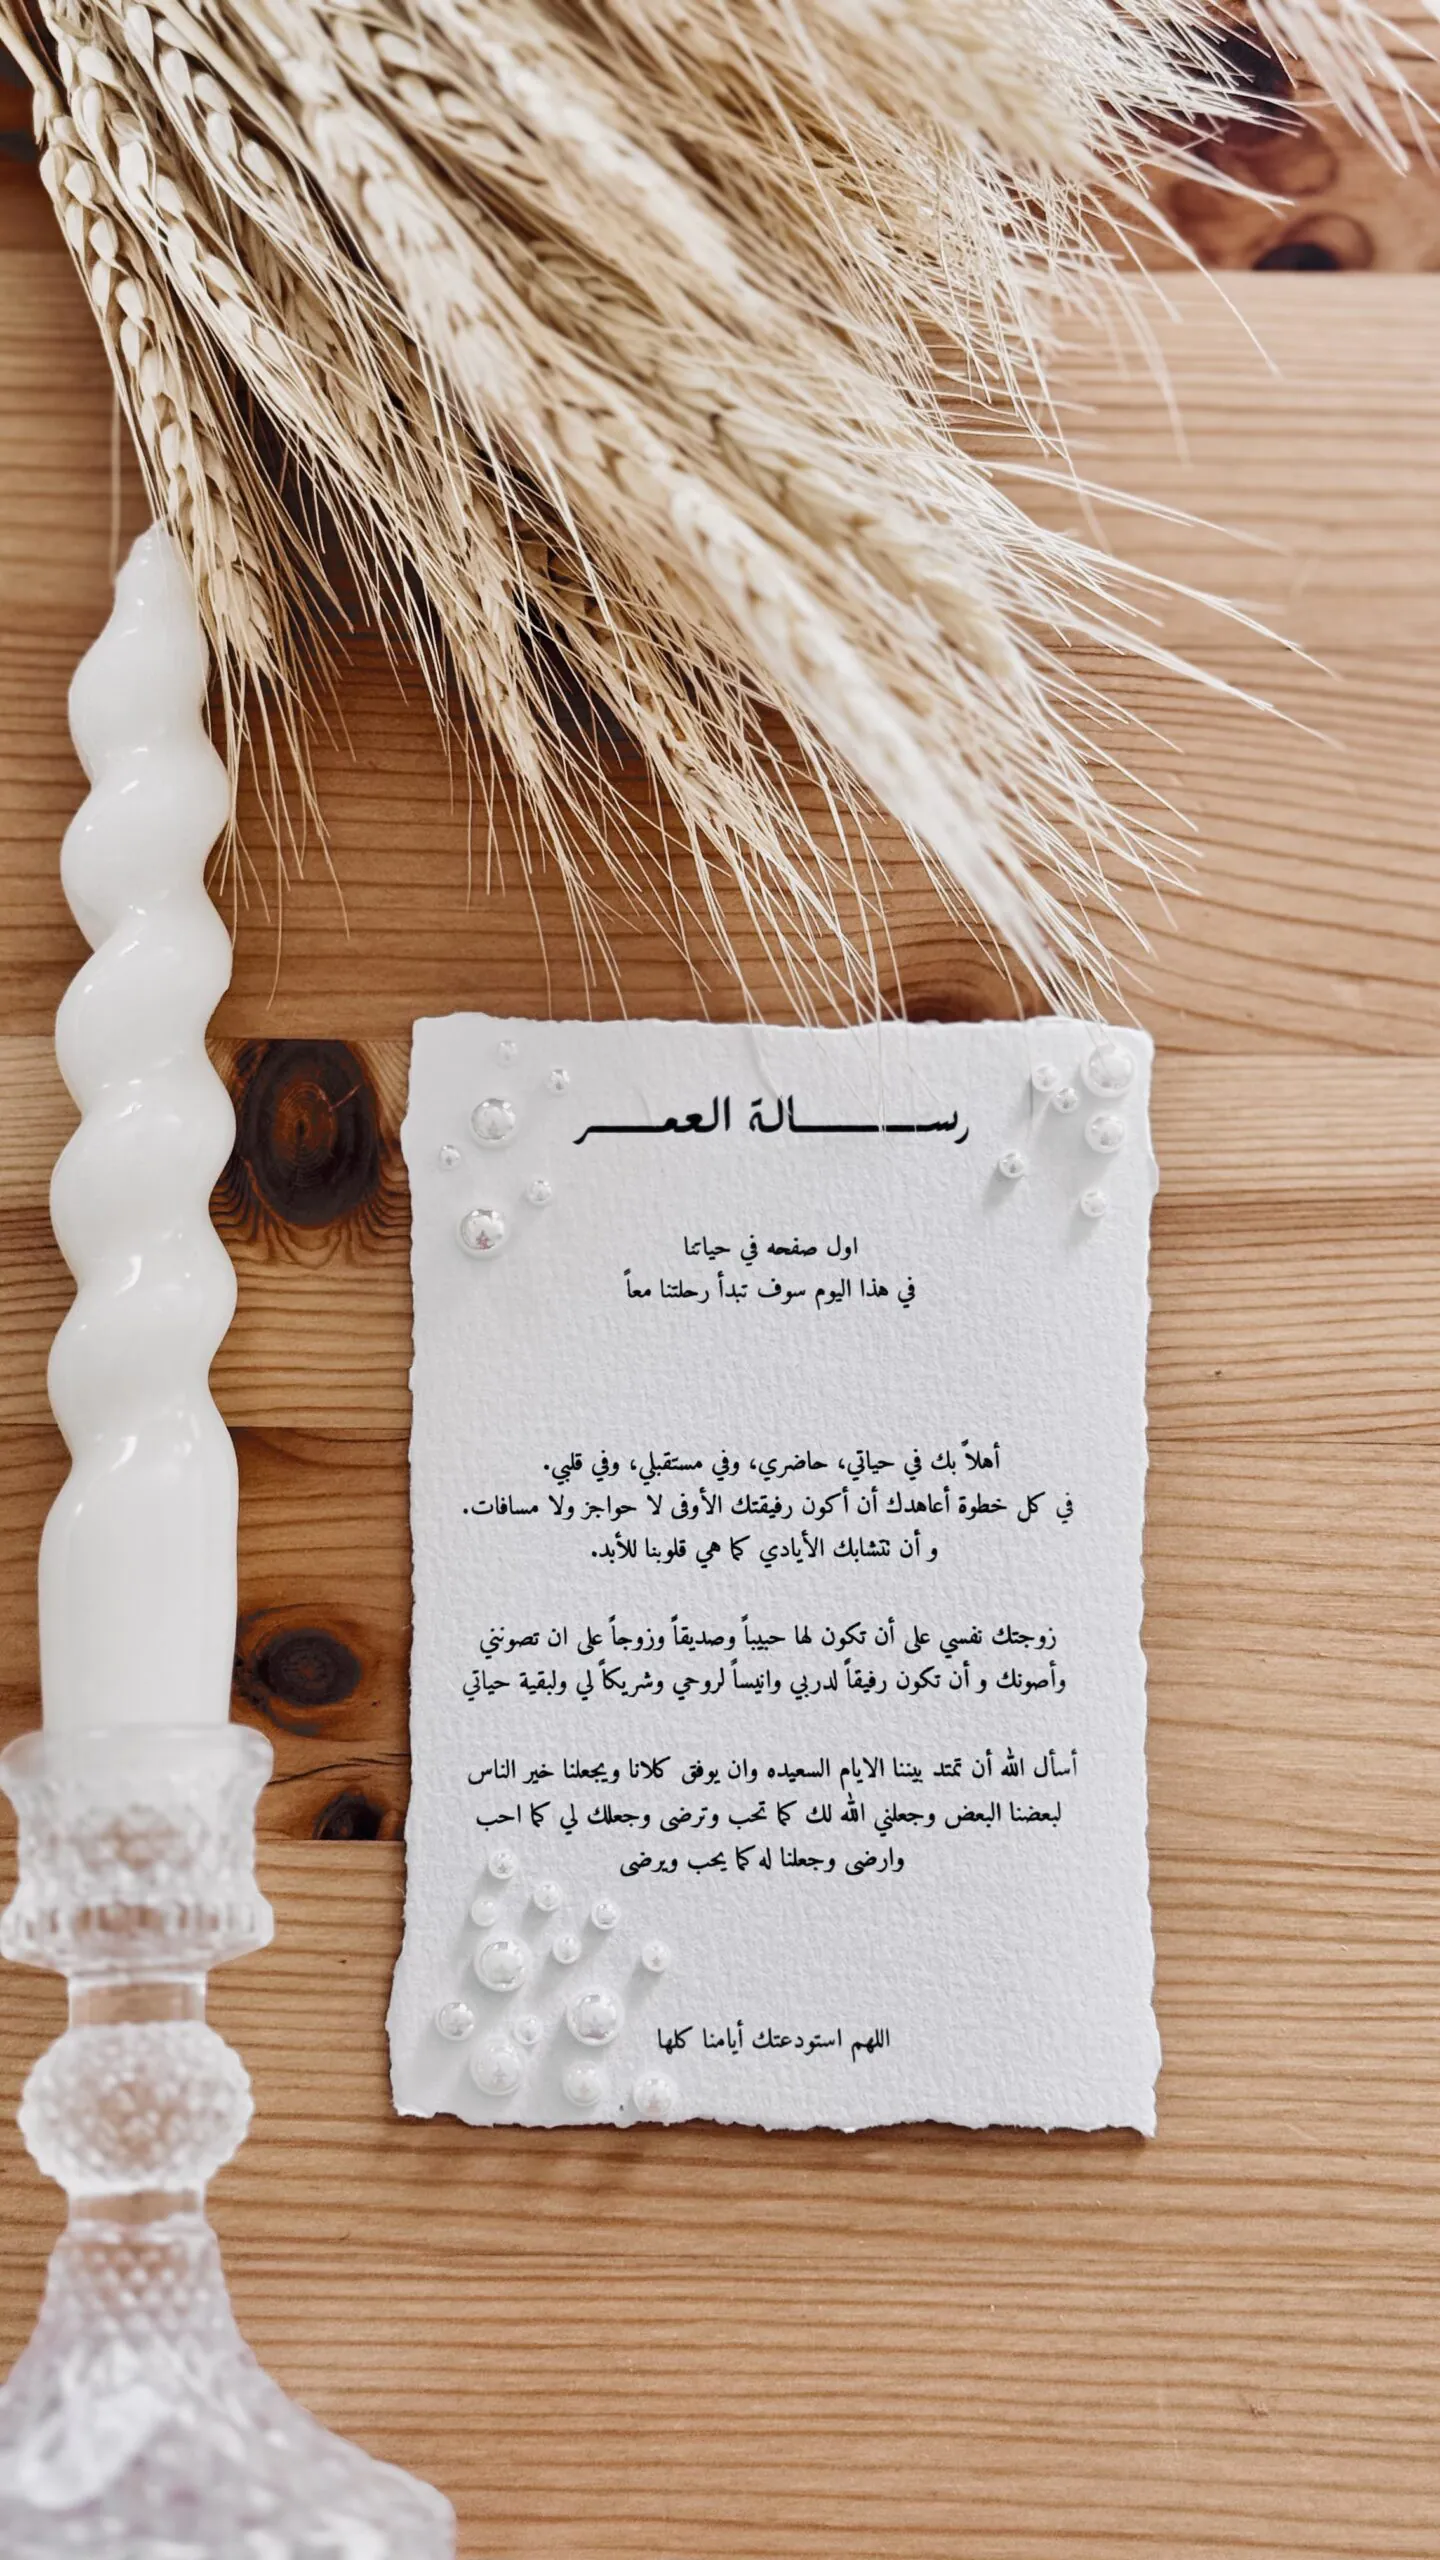 رسالة العمر
اول صفحه في حياتنا
في هذا اليوم سوف تبدأ رحلتنا معاً
أهلاً بك في حياتي، حاضري، وفي مستقبلي، وفي قلبي.
في كل خطوة أعاهدك أن أكون رفيقتك الأوفى لا حواجز ولا مسافات.
و أن تتشابك الأيادي كما هي قلوبنا للأبد.
زوجتك نفسي على أن تكون لها حبيباً وصديقاً وزوجاً على ان تصونني
وأصونك و أن تكون رفيقاً لدربي وانيساً لروحي وشريكاً لي ولبقية حياتي
أسأل الله أن تمتد بيننا الايام السعيده وان يوفق كلانا ويجعلنا خير الناس
لبعضنا البعض وجعلني الله لك كما تحب وترضى وجعلك لي كما احب
وارضى وجعلنا له كما يحب ويرضى
اللهم استودعتك أيامنا كلها